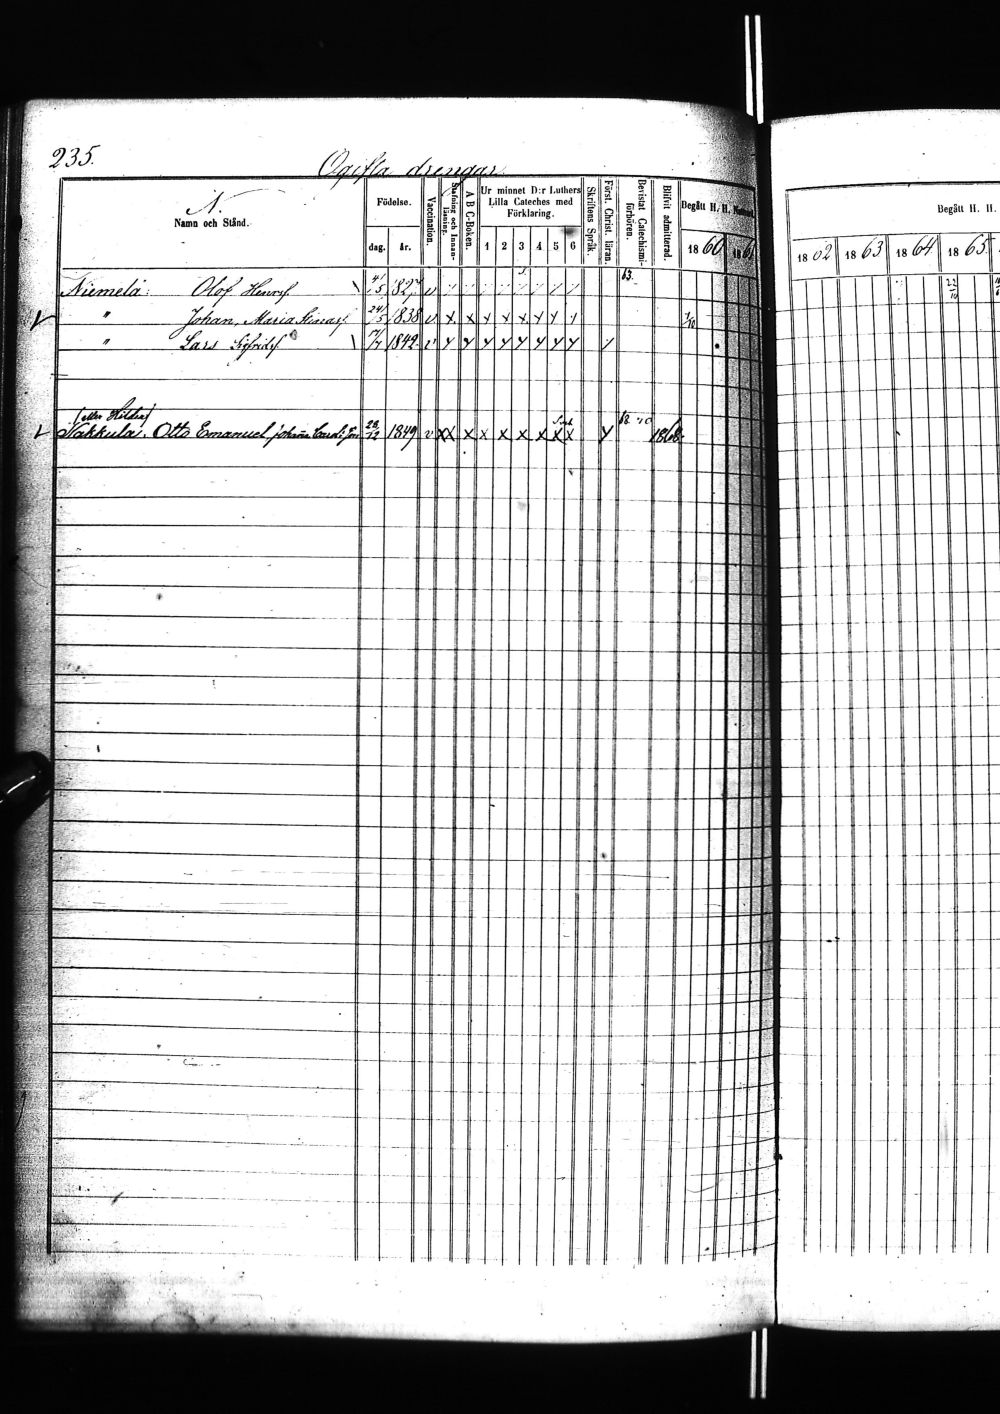 235.
Ogifta drengar
N.
Namn och Stånd.
Födelse.
dag.
år.
Vaccination.
Stafning och Innanläsning.
A B C-Boken.
Ur minnet D:r Luthers
Lilla Cateches med
Förklaring.
1 2 3 4 5 6
Skriftens Språk.
Först. Christ. läran.
Bevistat Catechismi-
förhören.
Blifvit admitterad.
Begått H. H. Nattvard.
1860 1861
Begått H. H.
1862 1863 1864 1865
Niemelä Olof Henrsf \ 4/5 1827 v / / / / / / / / 63. 22/10
" Johan, Maria 24/5 1838 v x x x x x x x x 7/10
" Lars Sigfridsf \ 17/7 1842 v x x x x x x x x /
(eller Hilden)
Nakkula. Otto Emanuel, 28/12 1849 v xx x x x x x x x x 68 70 1868